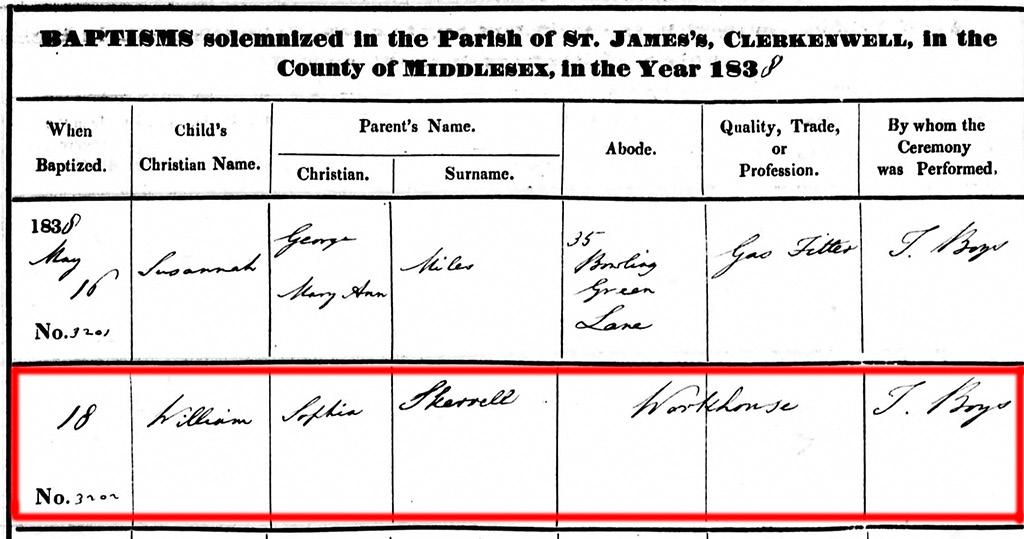 BAPTISMS solemnized in the Parish of ST. JAMES'S, CLERKENWELL, in the
County of MIDDLESEX, in the Year 1838
When Baptized.
Child's Christian Name.
Parent's Name.
Christian.
Surname.
Abode.
Quality, Trade, or Profession.
By whom the Ceremony was Performed.
1838
May
16
No. 3201
Susannah
George
Mary Ann
Miles
35
Bowling
Green
Lane
Gas Fitter
T. Boys
18
No. 3202
William
Sophia
Workhouse
T. Boys